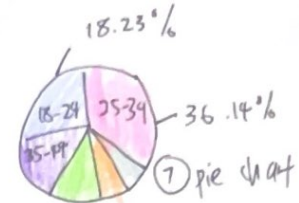 18.23%
18-24
25-34
36.14%
35-44
⑦ pie chart